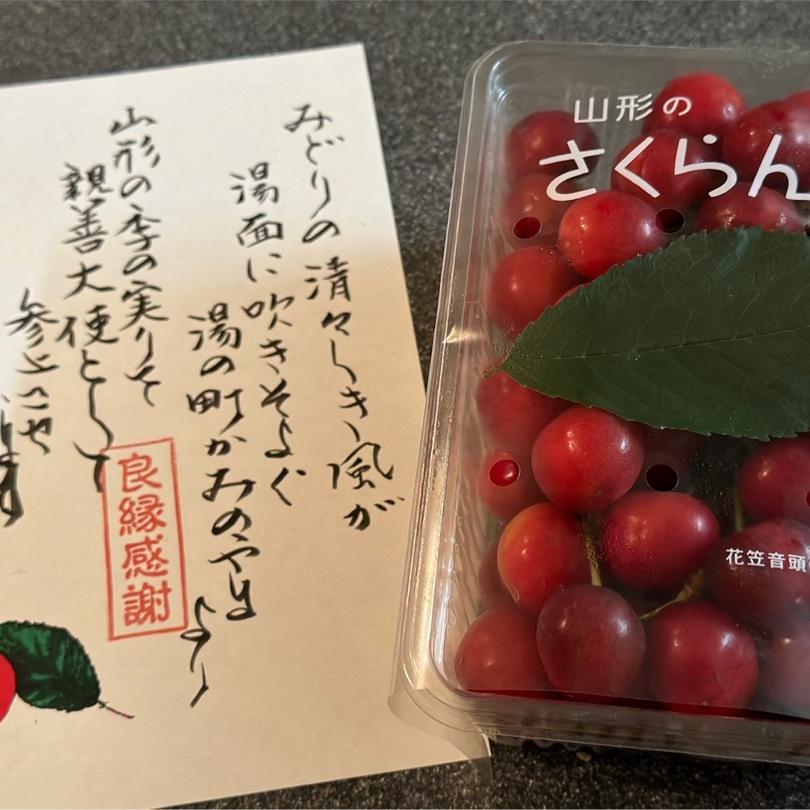 みどりの清々しき風が
湯面に吹きそよぐ
湯の町かみのやまより
山形の季の実りを
親善大使として
参上
良縁感謝
山形の
さくらん
花笠音頭